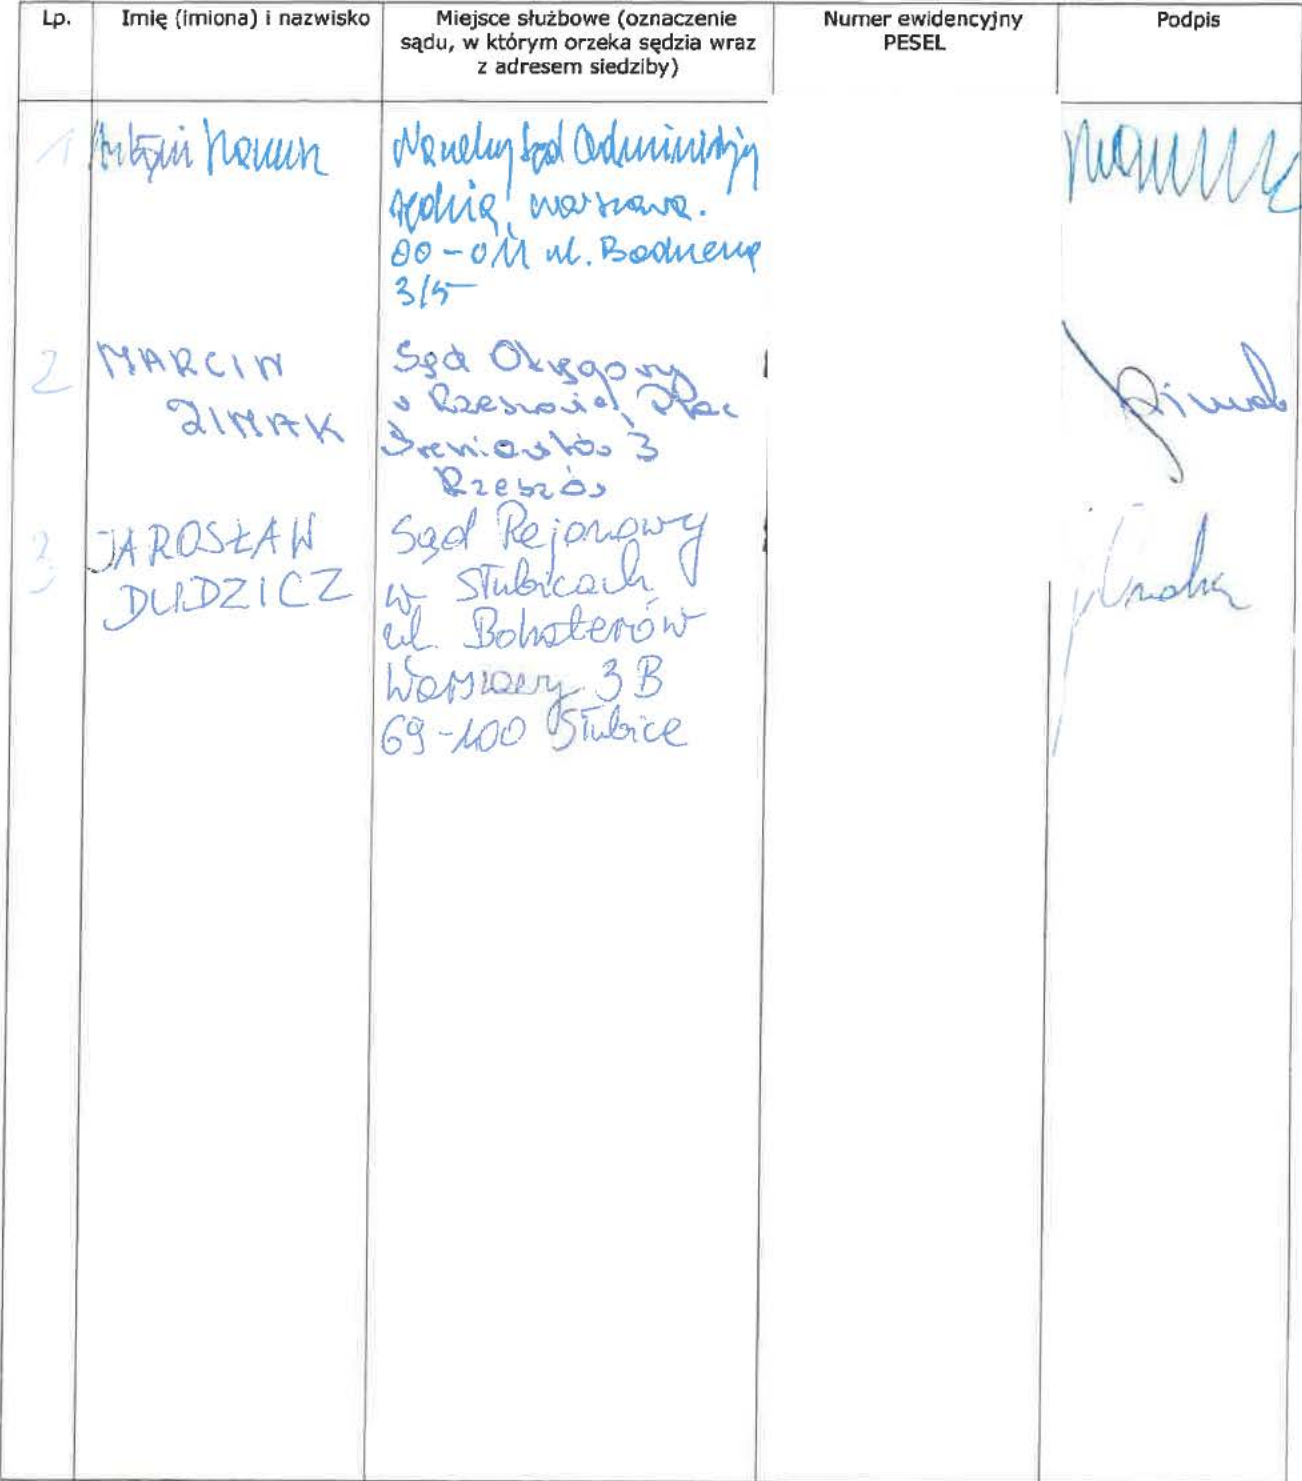 Lp.
Imię (imiona) i nazwisko
Miejsce służbowe (oznaczenie
sądu, w którym orzeka sędzia wraz
z adresem siedziby)
Numer ewidencyjny
PESEL
Podpis
1
Sąd
warszawa.
00-011 ul.
3/5
2
MARCIN
ZIMAK
Sąd Okręgowy
w Rzeszowie, Plac
Śreniawitów 3
Rzeszów
3
JAROSŁAW
DUDZICZ
Sąd Rejonowy
w Słubicach
ul. Bohaterów
Warszawy 3 B
69-100 Słubice